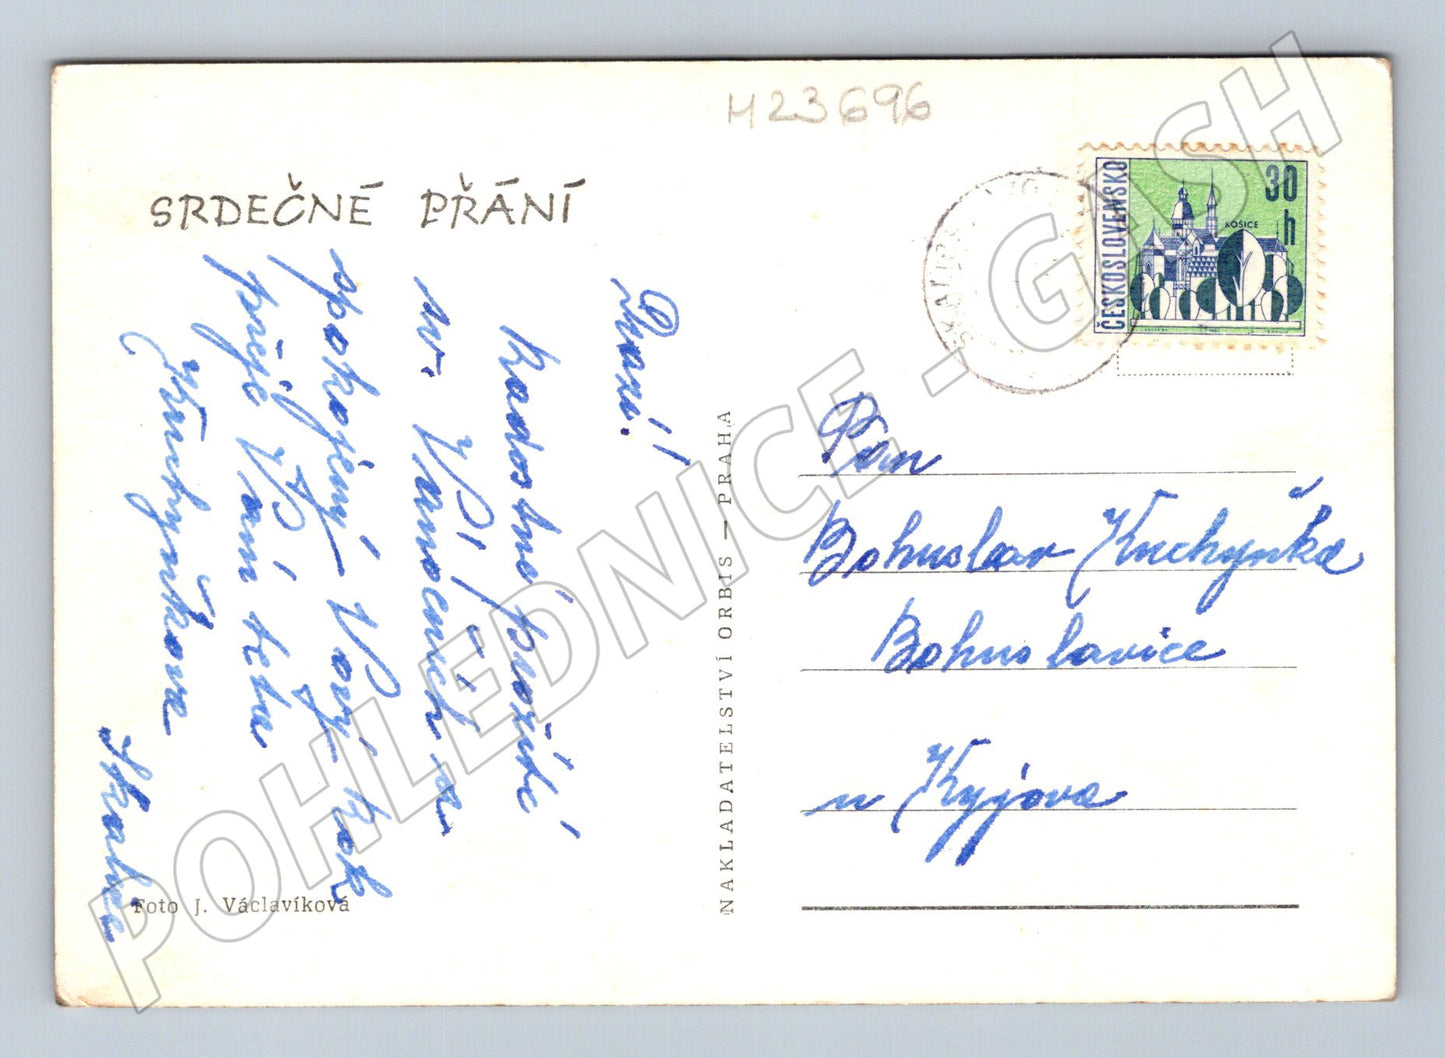 M23696
SRDEČNÉ PŘÁNÍ
Drazí!
Radostné prožití
sv. Vánočních a
spokojený Nový Rok
přeje Vám teta
Kuchyňkova
Skalice
Foto J. Václavíková
NAKLADATELSTVÍ ORBIS — PRAHA
ČESKOSLOVENSKO
30 h
KOŠICE
Pan
Bohuslav Kuchyňka
Bohuslavice
u Kyjova
POHLEDNICE - GASH